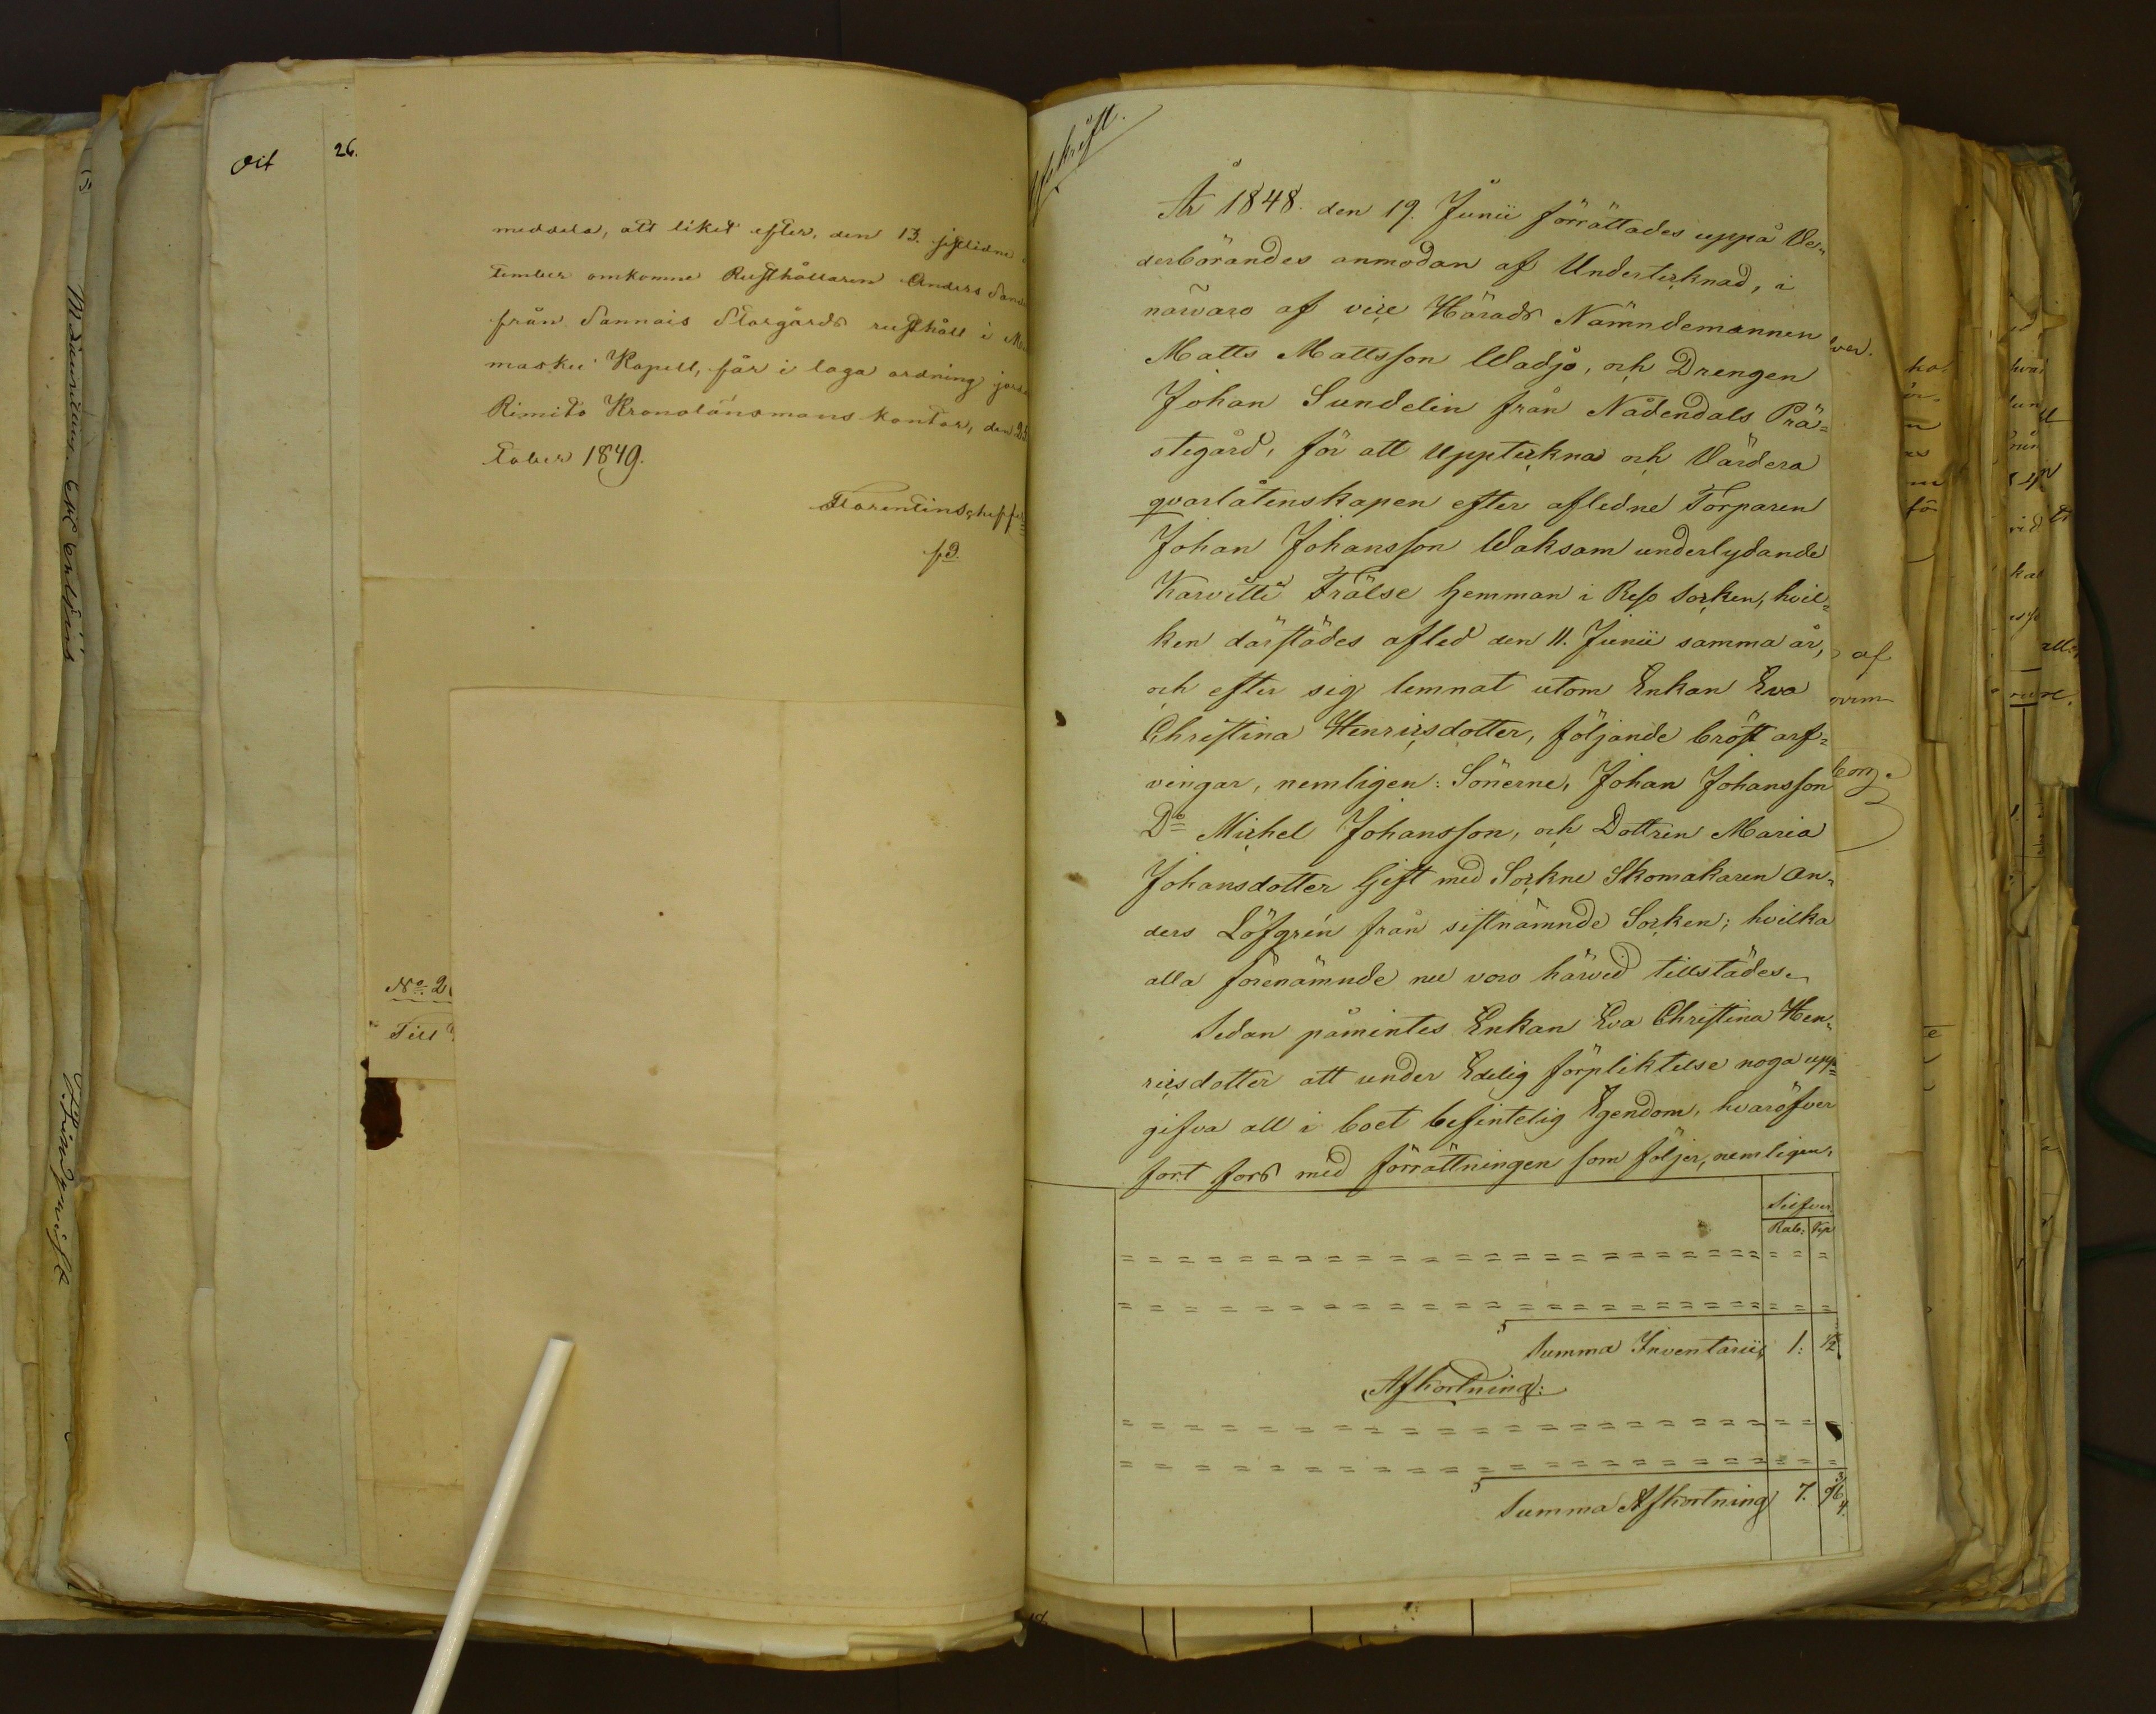 Oct
26.
meddela, att liket efter, den 13. sistlidne
tember omkomne Rusthållaren Anders
från Sannais Storgårds rusthåll i
masku Kapell, får i laga ordning
Rimito Kronolänsmans kontor, den 25
tober 1849.
No. 2
Till
Afskrift.
År 1848. den 19. Junii förrättades uppå Ve„
derbörandes anmodan af Undertecknad, i
närvaro af vice Härads Nämndemannen
Matts Mattsson Wadjo, och Drengen
Johan Sundelin från Nådendals Prä=
stegård, för att Uppteckna och Värdera
qvarlåtenskapen efter afledne Torparen
Johan Johansson Waksam underlydande
Karvitti Frälse hemman i Reso Socken, hvil=
ken därstädes afled den 11. Junii samma år,
och efter sig lemnat utom Enkan Eva
Christina Henricsdotter, följande bröst arf=
vingar, nemligen: Sönerne, Johan Johansson
Do Michel Johansson, och Dottren Maria
Johansdotter Gift med Sockne Skomakaren An„
ders Löfgrén från sistnämnde Socken; hvilka
alla förenämnde nu voro härvid tillstädes.
Sedan påmintes Enkan Eva Christina Hen„
ricsdotter att under Edelig förpliktelse noga upp=
gifva all i boet befintelig Egendom, hvaröfver
fort fors med förrättningen som följer, nemligen,
Silfver.
Rub: Kop
Summa Inventarii, 1: 12
Afkortning:
Summa Afkortning 7. 96